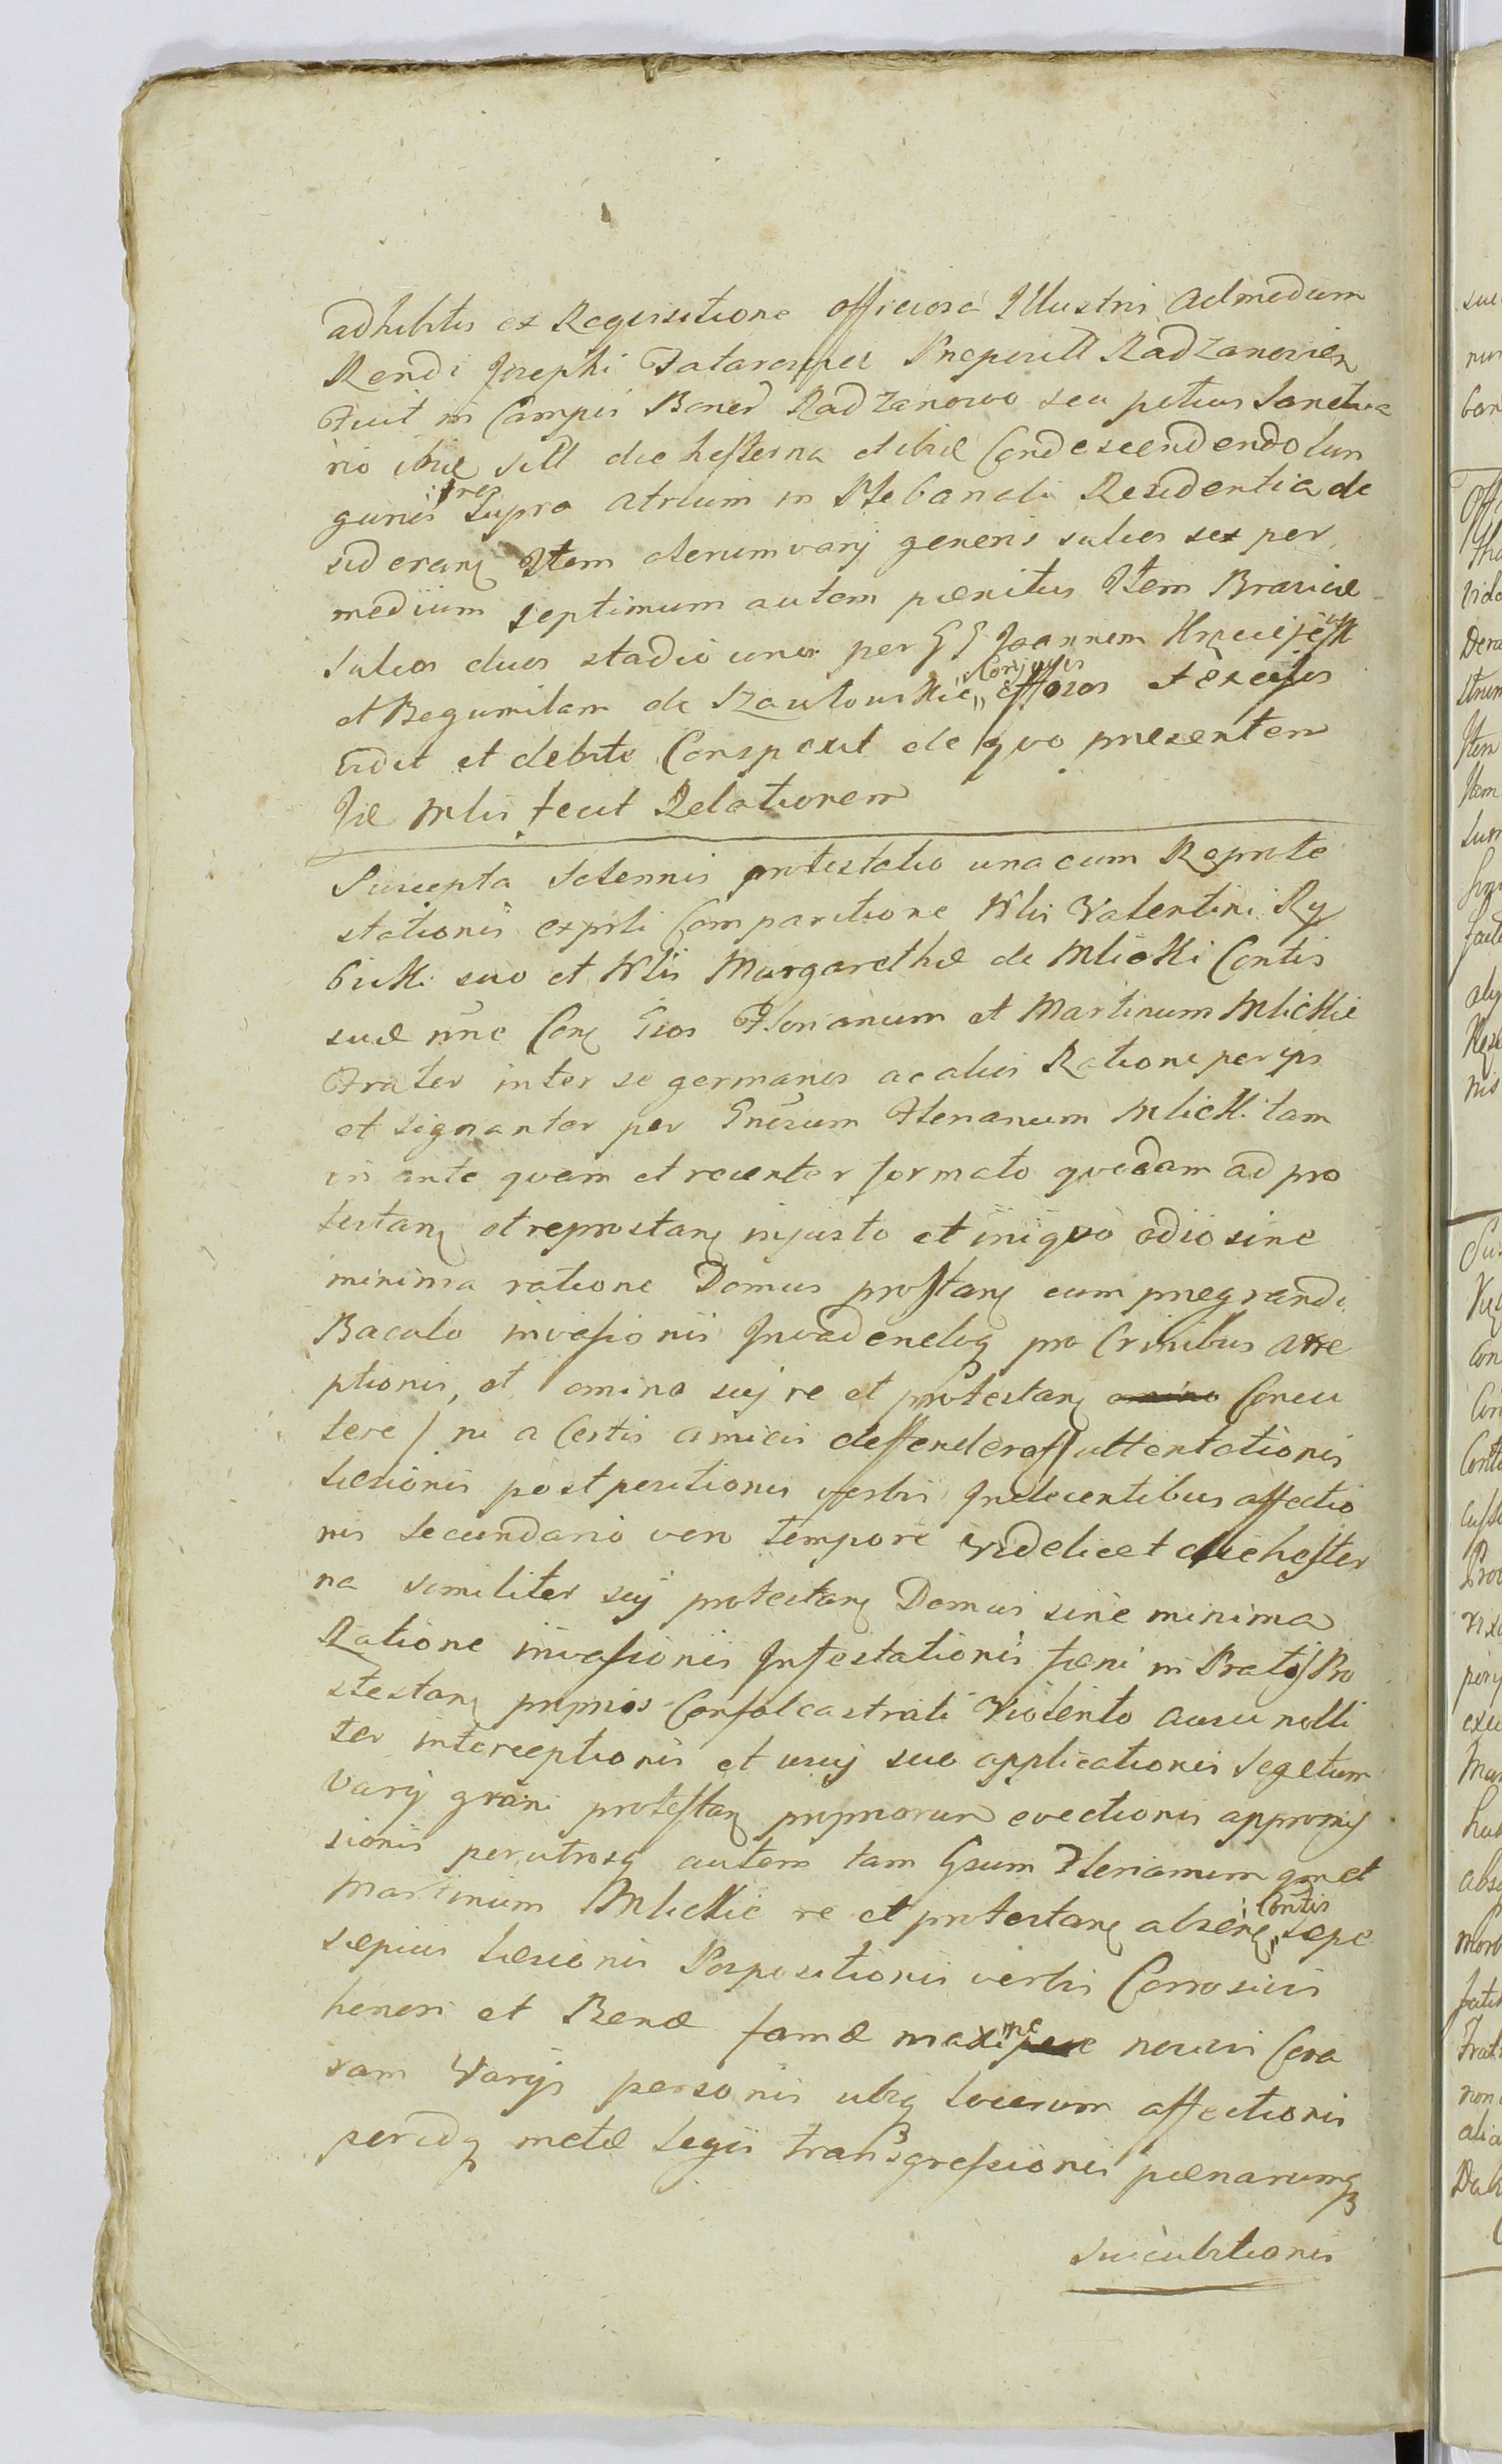 adhibitis ex Requisitione officiosa Illustris Admodum
Rendi Josephi Praepositi Radzanovien
Fuit in Campis Bonor Radzanowo seu potius Sanctua
rio ibid sitt die hesterna et ibid Condescendendo lun
guries tres supra atrium in Plebanali Residentia de
siderarꝫ Item iterum varij generis sulcos sex per
medium septimum autem paenitus Item Braxicae
sulcos duos stadio uno per GG Joannem
et Bogumilam de Conjuges effosos et excisos
vidit et debite Conspexit de quo presentem
Id Mlis fecit Relationem
Suscepta Solennis protestatio una cum Reprote
stationis exprti Comparitione Nlis Valentini Ry
bicki suo et Nlis Margarethae de Mlicki Contis
suae nñe Conꝫ Gsos Florianum et Martinum Mlickie
Frater inter se germanos ac alios Ratione per ips
et signanter per Gnĕrsum Florianum Mlicki tam
in ante quam et recenter formato quodam ad pro
testanꝫ et reprostanꝫ injusto et iniquo odio sine
minima ratione Domus prostanꝫ cum praegrandi
Baculo invasionis Invadendoq pro Crinibus arre
ptionis, et omino sej re et protestanꝫ Concu
tere / ni a Certis amicis deffenderass / attentationis
laesionis postpositionis verbis Indecentibus affectio
nis secundario vero tempore videlicet die hester
na similiter sej protestanꝫ Domus sine minima
Ratione invasionis Infestationis faeni in Pratis Pro
stestanꝫ propriis Confalcastrati Violento ausu nolli
ter interceptionis et usuj suo applicationis segetum
varij grani protestanꝫ propriorum evectionis appromis
sionis per utrosq autem tam Gsum Florianum qm et
Martinum Mlickie re et protestanꝫ absenꝫ Contis sepe
saepius laesionis Pospositionis verbis Corrosivis
honori et Bonae famae maxime nocivis Cora
ram Varijs personis ubiq locorum affectionis
peridq metae legis transgressionis paenarumq
succubitionis